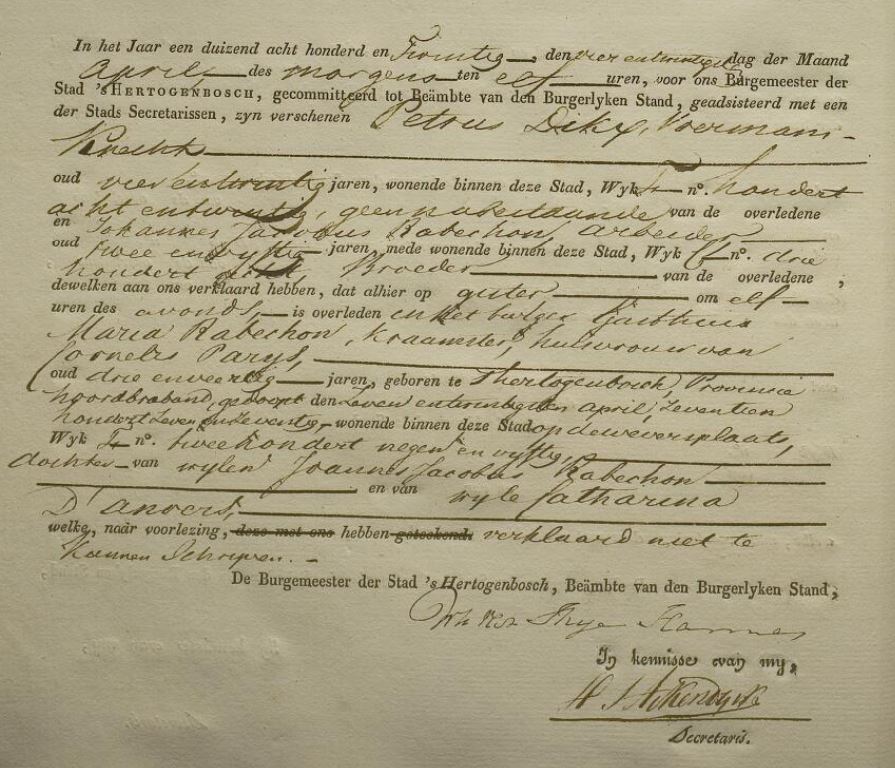 In het Jaar een duizend acht honderd en Twintig, den vier en twintigste dag der Maand
April des morgens ten elf uren, voor ons Burgemeester der
Stad 'sHERTOGENBOSCH, gecommitteerd tot Beämbte van den Burgerlyken Stand, geadsisteerd met een
der Stads Secretarissen, zyn verschenen Petrus Dikx, Voermans-
Knecht
oud vier en twintig jaren, wonende binnen deze Stad, Wyk F nº. hondert
acht en twintig, geen nabestaande van de overledene
en Johannes Jacobus Rabechon, arbeider
oud twee en vyftig jaren, mede wonende binnen deze Stad, Wyk nº. drie
hondert acht, Broeder van de overledene,
dewelken aan ons verklaard hebben, dat alhier op gister om elf
uren des avonds, is overleden in het burger Gasthuis
Maria Rabechon, Kraamster, huisvrouw van
Cornelis Parys,
oud drie en veertig jaren, geboren te 'shertogenbosch, Provincie
noordbraband, gedoopt den Zeven en twintigsten april, Zeventien
hondert Zeven en Zeventig, wonende binnen deze Stad op de weversplaats,
Wyk F nº. twee hondert negen en vyftig,
dochter van wylen Joannes Jacobus Rabechon
en van wyle Catharina
D'anvers,
welke, naar voorlezing, deze met ons hebben geteekend. verklaard niet te
Kunnen Schryven.
De Burgemeester der Stad 's Hertogenbosch, Beämbte van den Burgerlyken Stand,
In kennisse van my,
Secretaris.